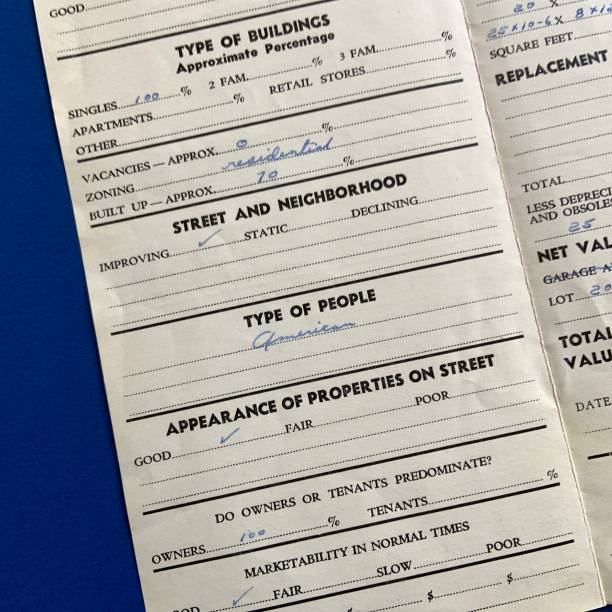 GOOD
TYPE OF BUILDINGS
Approximate Percentage
SINGLES 100 % 2 FAM. % 3 FAM. %
APARTMENTS % RETAIL STORES %
OTHER
VACANCIES — APPROX. 0 %
ZONING residential
BUILT UP — APPROX. 70 %
STREET AND NEIGHBORHOOD
IMPROVING ✓ STATIC DECLINING
TYPE OF PEOPLE
American
APPEARANCE OF PROPERTIES ON STREET
GOOD ✓ FAIR POOR
DO OWNERS OR TENANTS PREDOMINATE?
OWNERS 100 % TENANTS %
MARKETABILITY IN NORMAL TIMES
✓ FAIR SLOW POOR
$ $
20 X
25 X 10-6 X 8 X
SQUARE FEET
REPLACEMENT
TOTAL
LESS DEPREC
AND OBSOLE
25
NET VAL
GARAGE A
LOT 20
TOTAL
VALU
DATE